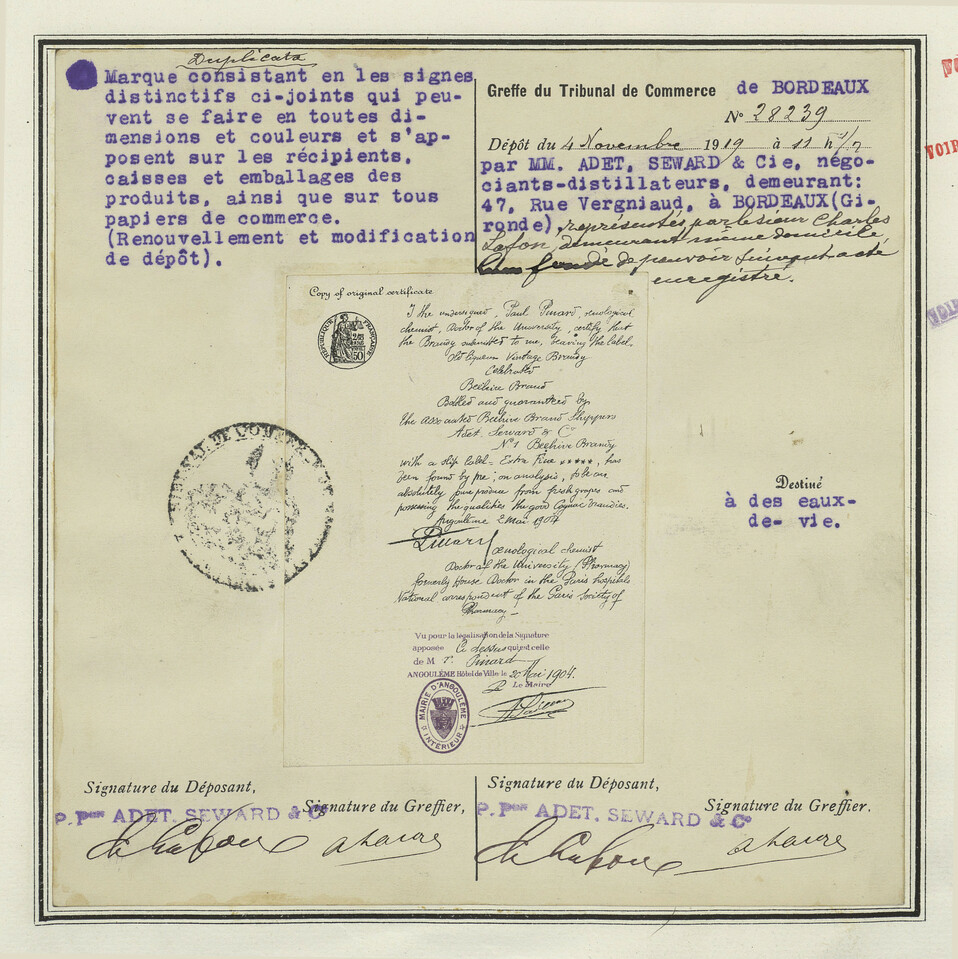 Duplicata
Marque consistant en les signes
distinctifs ci-joints qui peu-
vent se faire en toutes di-
mensions et couleurs et s'ap-
posent sur les récipients,
caisses et emballages des
produits, ainsi que sur tous
papiers de commerce.
(Renouvellement et modification
de dépôt).
Greffe du Tribunal de Commerce de BORDEAUX
N° 28239
Dépôt du 4 Novembre 1919 à 11 h 1/2
par MM. ADET, SEWARD & Cie, négo-
ciants-distillateurs, demeurant:
47, Rue Vergniaud, à BORDEAUX(Gi-
ronde), représentés par le sieur Charles
Lafon, demeurant même domicile
fondé de pouvoir suivant acte
enregistré.
Copy of original certificate
RÉPUBLIQUE FRANÇAISE
50
I the undersigned, Paul Pinard, œnological
chemist, Doctor of the University, certify that
the Brandy submitted to me, bearing the label.
Old liqueur Vintage Brandy
Celebrated
Beehive Brand
Bottled and guaranteed by
the associated Beehive Brand Shippers
Adet, Seward & Co
N°1 Beehive Brandy
with a slip label - Extra Fine *****, has
been found by me; on analysis, to be an
absolutely pure produce from fresh grapes and
possessing the qualities the good Cognac brandies.
Angoulême 2 Mai 1904
Pinard
œnological chemist
Doctor at the University (Pharmacy)
formerly House Doctor in the Paris hospitals
National correspondent of the Paris Society of
Pharmacy -
Vu pour la légalisation de la Signature
apposée ci dessus qui est celle
de M P. Pinard
ANGOULÊME Hôtel de Ville le 2 Mai 1904.
Le Maire
MAIRIE D'ANGOULÊME
INTÉRIEUR
Destiné
à des eaux-
de-vie.
Signature du Déposant,
Signature du Greffier,
P. Pon ADET, SEWARD & Co
Signature du Déposant,
Signature du Greffier.
P. Pon ADET, SEWARD & Co
VOIR